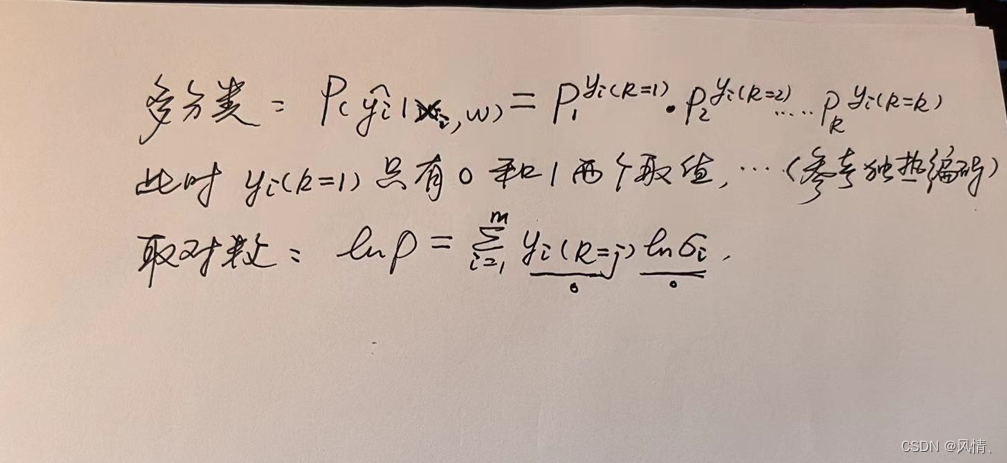 多分类: P(ŷi|xi,w) = P1^yi(k=1) · P2^yi(k=2) ····· Pk^yi(k=k)
此时 yi(k=1) 只有0和1两个取值, ···(参考独热编码)
取对数: lnP = Σ_{i=1}^{m} yi(k=j) lnσi.
CSDN @风情、